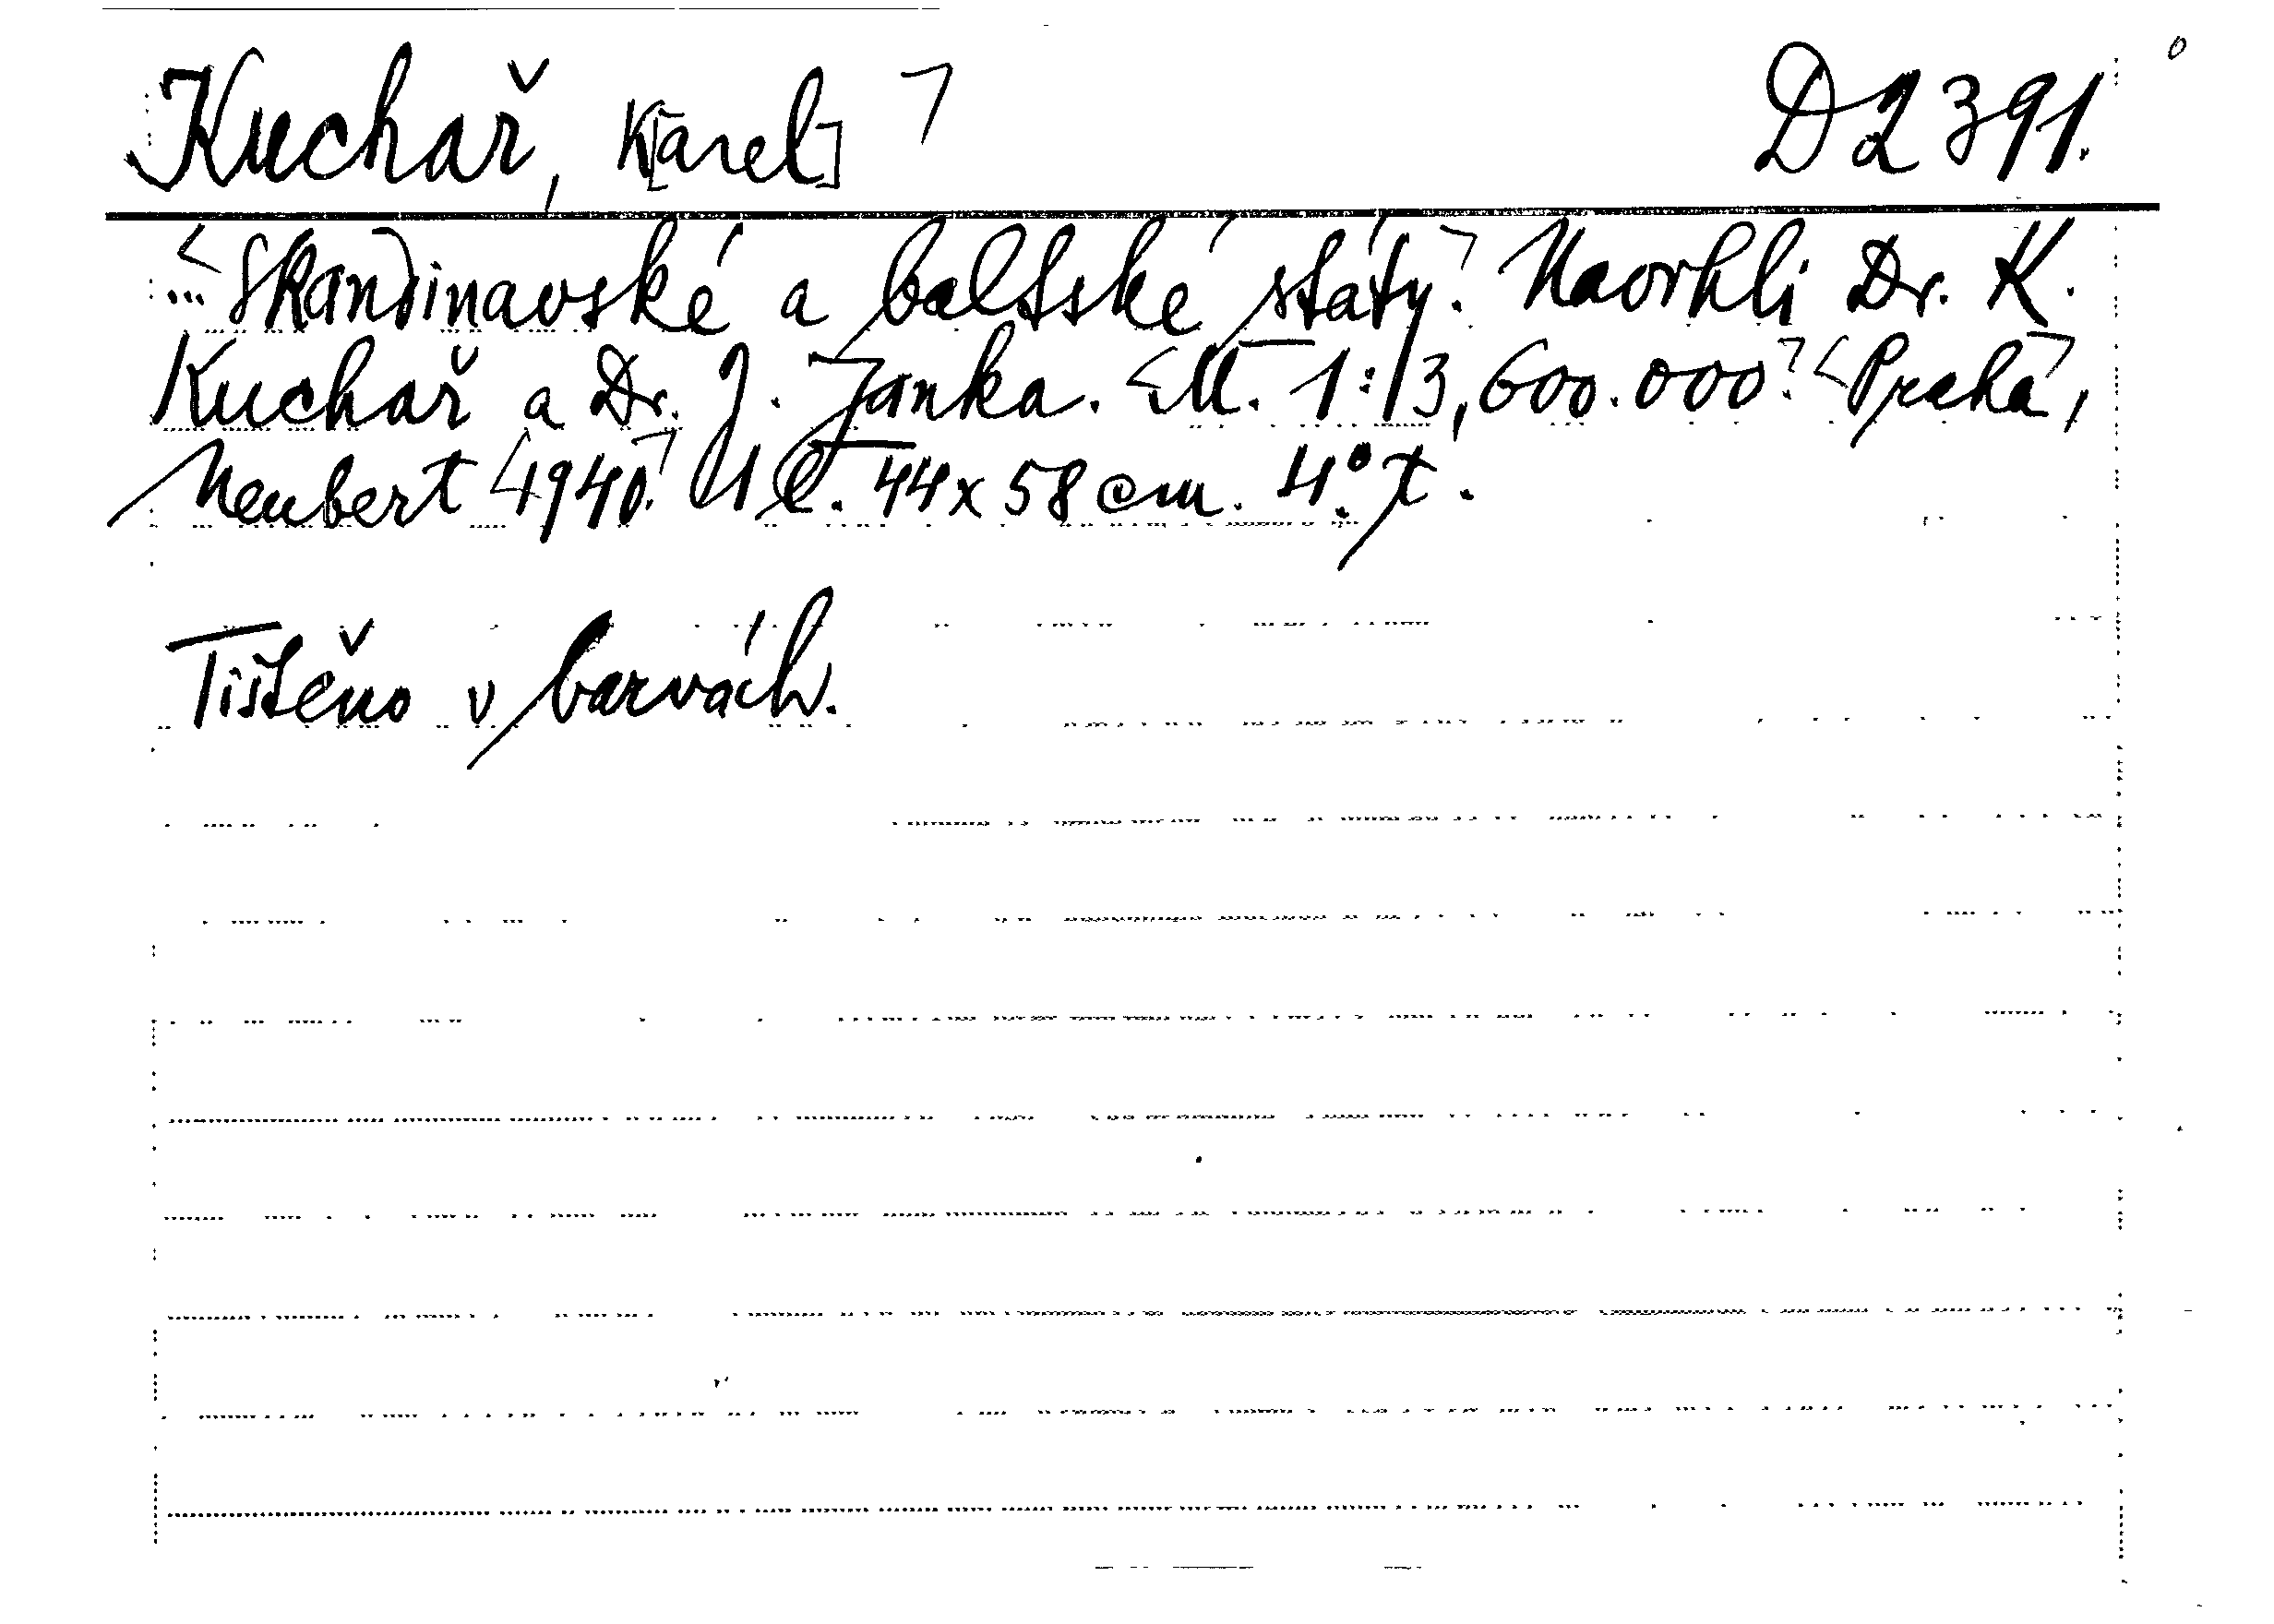 Kuchař, K[arel] D 2 391.
... Skandinavské a baltské státy. Navrhli Dr. K.
Kuchař a Dr. J. Janka. M. 1:13,600.000. Praha,
Neubert 1940. 1 l. 44 x 58 cm. 4°.
Tištěno v barvách.